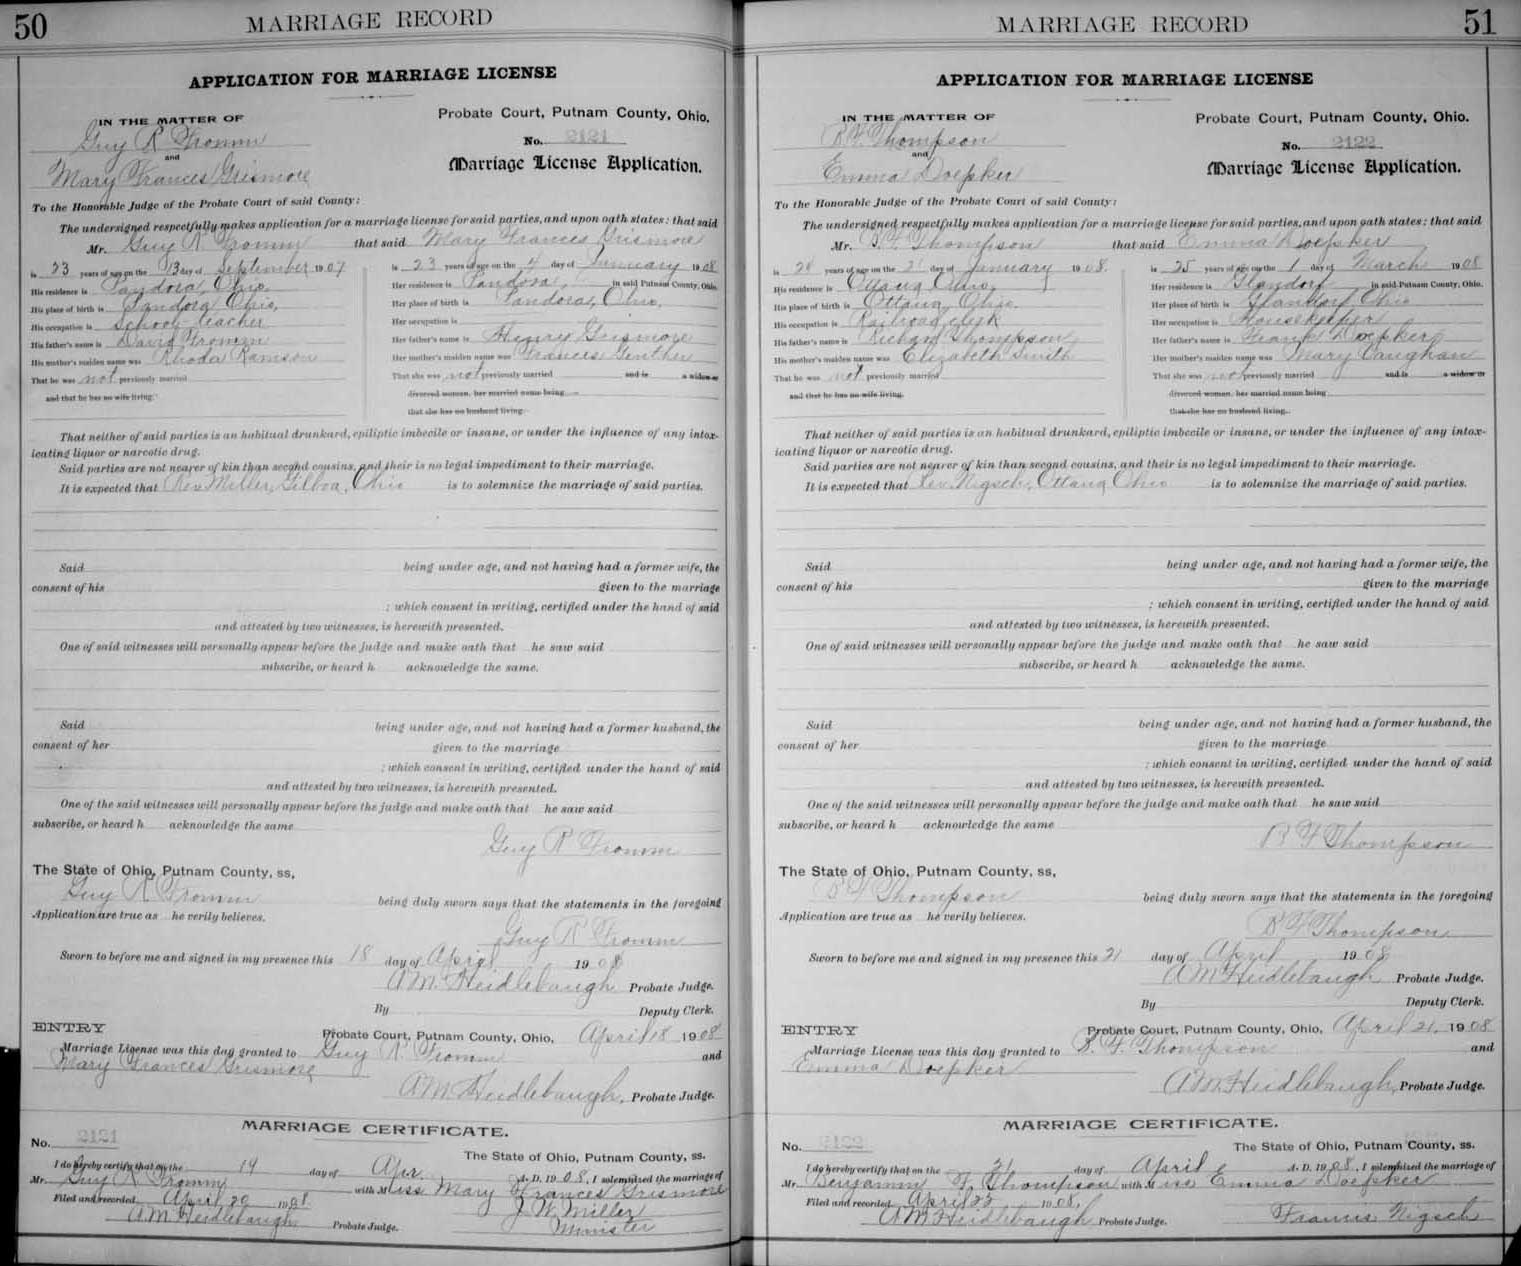 50
MARRIAGE RECORD
APPLICATION FOR MARRIAGE LICENSE
IN THE MATTER OF
Guy R Fromm
and
Mary Frances Grismore
Probate Court, Putnam County, Ohio,
No. 2121
Marriage License Application.
To the Honorable Judge of the Probate Court of said County:
The undersigned respectfully makes application for a marriage license for said parties, and upon oath states: that said
Mr. Guy R. Fromm that said Mary Frances Grismore
is 23 years of age on the 13 day of September 1907
His residence is Pandora, Ohio.
His place of birth is Pandora Ohio,
His occupation is School teacher
His father's name is David Fromm
His mother's maiden name was Rhoda Ramson
That he was not previously married
and that he has no wife living.
is 23 years of age on the 4 day of January 1908
Her residence is Pandora, in said Putnam County, Ohio.
Her place of birth is Pandora, Ohio,
Her occupation is
Her father's name is Henry Grismore
Her mother's maiden name was Frances
That she was not previously married and is a widow or
divorced woman, her married name being
that she has no husband living.
That neither of said parties is an habitual drunkard, epiliptic imbecile or insane, or under the influence of any intox-
icating liquor or narcotic drug.
Said parties are not nearer of kin than second cousins, and their is no legal impediment to their marriage.
It is expected that Rev Miller, Gilboa, Ohio is to solemnize the marriage of said parties.
Said being under age, and not having had a former wife, the
consent of his given to the marriage
; which consent in writing, certified under the hand of said
and attested by two witnesses, is herewith presented.
One of said witnesses will personally appear before the judge and make oath that he saw said
subscribe, or heard h acknowledge the same.
Said being under age, and not having had a former husband, the
consent of her given to the marriage
; which consent in writing, certified under the hand of said
and attested by two witnesses, is herewith presented.
One of the said witnesses will personally appear before the judge and make oath that he saw said
subscribe, or heard h acknowledge the same
Guy R Fromm
The State of Ohio, Putnam County, ss,
Guy R Fromm being duly sworn says that the statements in the foregoing
Application are true as he verily believes.
Guy R Fromm
Sworn to before me and signed in my presence this 18 day of April 1908
A M. Heidlebaugh Probate Judge.
By Deputy Clerk.
ENTRY
Probate Court, Putnam County, Ohio, April 18 1908
Marriage License was this day granted to Guy R. Fromm and
Mary Frances Grismore
A M Heidlebaugh, Probate Judge.
MARRIAGE CERTIFICATE.
No. 2121
The State of Ohio, Putnam County, ss.
I do hereby certify that on the 19 day of Apr A. D. 1908, I solemnized the marriage of
Mr. Guy R. Fromm with Miss Mary Frances Grismore
Filed and recorded April 20 1908.
J W Miller
A M Heidlebaugh Probate Judge.
Minister
51
MARRIAGE RECORD
APPLICATION FOR MARRIAGE LICENSE
IN THE MATTER OF
B F Thompson
and
Emma Doepker
Probate Court, Putnam County, Ohio.
No. 2122
Marriage License Application.
To the Honorable Judge of the Probate Court of said County:
The undersigned respectfully makes application for a marriage license for said parties, and upon oath states: that said
Mr. B F Thompson that said Emma Doepker
is years of age on the day of January 1908.
His residence is Ottawa Ohio,
His place of birth is Ottawa, Ohio.
His occupation is Railroad clerk
His father's name is Richard Thompson
His mother's maiden name was Elizabeth Smith
That he was not previously married
and that he has no wife living.
is 25 years of age on the 1 day of March 1908
Her residence is Glandorf in said Putnam County, Ohio.
Her place of birth is Glandorf, Ohio
Her occupation is Housekeeper
Her father's name is Frank Doepker
Her mother's maiden name was Mary Vaughan
That she was not previously married and is a widow or
divorced woman, her married name being
that she has no husband living.
That neither of said parties is an habitual drunkard, epiliptic imbecile or insane, or under the influence of any intox-
icating liquor or narcotic drug.
Said parties are not nearer of kin than second cousins, and their is no legal impediment to their marriage.
It is expected that Rev. Nigsch, Ottawa, Ohio is to solemnize the marriage of said parties.
Said being under age, and not having had a former wife, the
consent of his given to the marriage
; which consent in writing, certified under the hand of said
and attested by two witnesses, is herewith presented.
One of said witnesses will personally appear before the judge and make oath that he saw said
subscribe, or heard h acknowledge the same.
Said being under age, and not having had a former husband, the
consent of her given to the marriage
; which consent in writing, certified under the hand of said
and attested by two witnesses, is herewith presented.
One of the said witnesses will personally appear before the judge and make oath that he saw said
subscribe, or heard h acknowledge the same
B F Thompson
The State of Ohio, Putnam County, ss,
B F Thompson being duly sworn says that the statements in the foregoing
Application are true as he verily believes.
B F Thompson
Sworn to before me and signed in my presence this 21 day of April 1908
A M Heidlebaugh Probate Judge.
By Deputy Clerk.
ENTRY
Probate Court, Putnam County, Ohio, April 21, 1908
Marriage License was this day granted to B. F. Thompson and
Emma Doepker
A M Heidlebaugh, Probate Judge.
MARRIAGE CERTIFICATE.
No. 2122
The State of Ohio, Putnam County, ss.
I do hereby certify that on the 21 day of April A. D. 1908, I solemnized the marriage of
Mr Benjamin F. Thompson with Miss Emma Doepker
Filed and recorded April 23 1908,
A M Heidlebaugh Probate Judge.
Francis Nigsch